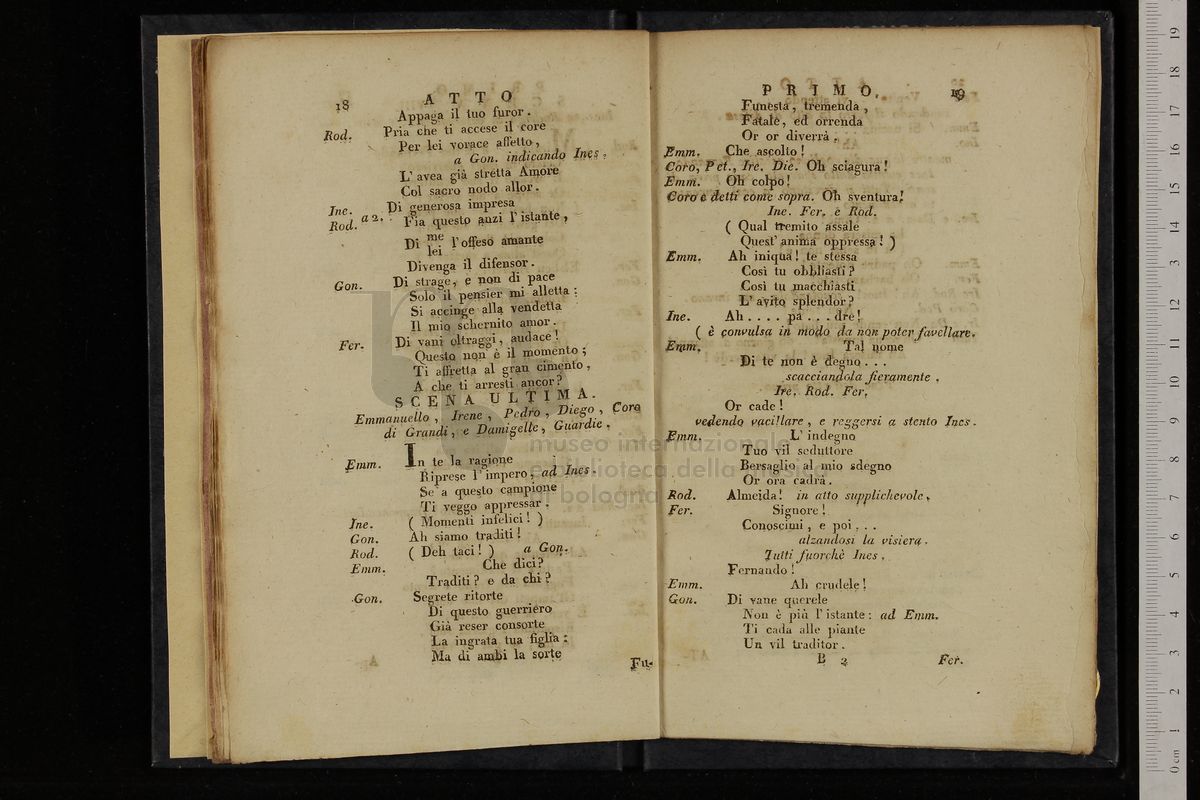 18
ATTO
Appaga il tuo furor.
Rod. Pria che ti accese il core
Per lei vorace affetto,
a Gon. indicando Ines.
L'avea già stretta Amore
Col sacro nodo allor.
Ine. Di generosa impresa
Rod. a 2. Fia questo anzi l'istante,
Di me l'offeso amante
lei
Divenga il difensor.
Gon. Di strage, e non di pace
Solo il pensier mi alletta:
Si accinge alla vendetta
Il mio schernito amor.
Fer. Di vani oltraggi, audace!
Questo non è il momento;
Ti affretta al gran cimento,
A che ti arresti ancor?
SCENA ULTIMA.
Emmanuello, Irene, Pedro, Diego, Coro
di Grandi, e Damigelle, Guardie.
Emm. In te la ragione
Riprese l'impero, ad Ines.
Se a questo campione
Ti veggo appressar.
Ine. ( Momenti infelici! )
Gon. Ah siamo traditi!
Rod. ( Deh taci! ) a Gon.
Emm. Che dici?
Traditi? e da chi?
Gon. Segrete ritorte
Di questo guerriero
Già reser consorte
La ingrata tua figlia:
Ma di ambi la sorte
Fu-
PRIMO. 19
Funesta, tremenda,
Fatale, ed orrenda
Or or diverrà.
Emm. Che ascolto!
Coro, Pet., Ire. Die. Oh sciagura!
Emm. Oh colpo!
Coro e detti come sopra. Oh sventura!
Ine. Fer. e Rod.
( Qual tremito assale
Quest' anima oppressa! )
Emm. Ah iniqua! te stessa
Così tu obbliasti?
Così tu macchiasti
L'avito splendor?
Ine. Ah.... pa...dre!
( è convulsa in modo da non poter favellare.
Emm. Tal nome
Di te non è degno...
scacciandola fieramente.
Ire. Rod. Fer.
Or cade!
vedendo vacillare, e reggersi a stento Ines.
Emm. L'indegno
Tuo vil seduttore
Bersaglio al mio sdegno
Or ora cadrà.
Rod. Almeida! in atto supplichevole.
Fer. Signore!
Conoscimi, e poi...
alzandosi la visiera.
Tutti fuorchè Ines.
Fernando!
Emm. Ah crudele!
Gon. Di vane querele
Non è più l'istante: ad Emm.
Ti cada alle piante
Un vil traditor.
B 2 Fer.
museo internazionale
e biblioteca della musica
di bologna
0 cm 1 2 3 4 5 6 7 8 9 10 11 12 13 14 15 16 17 18 19